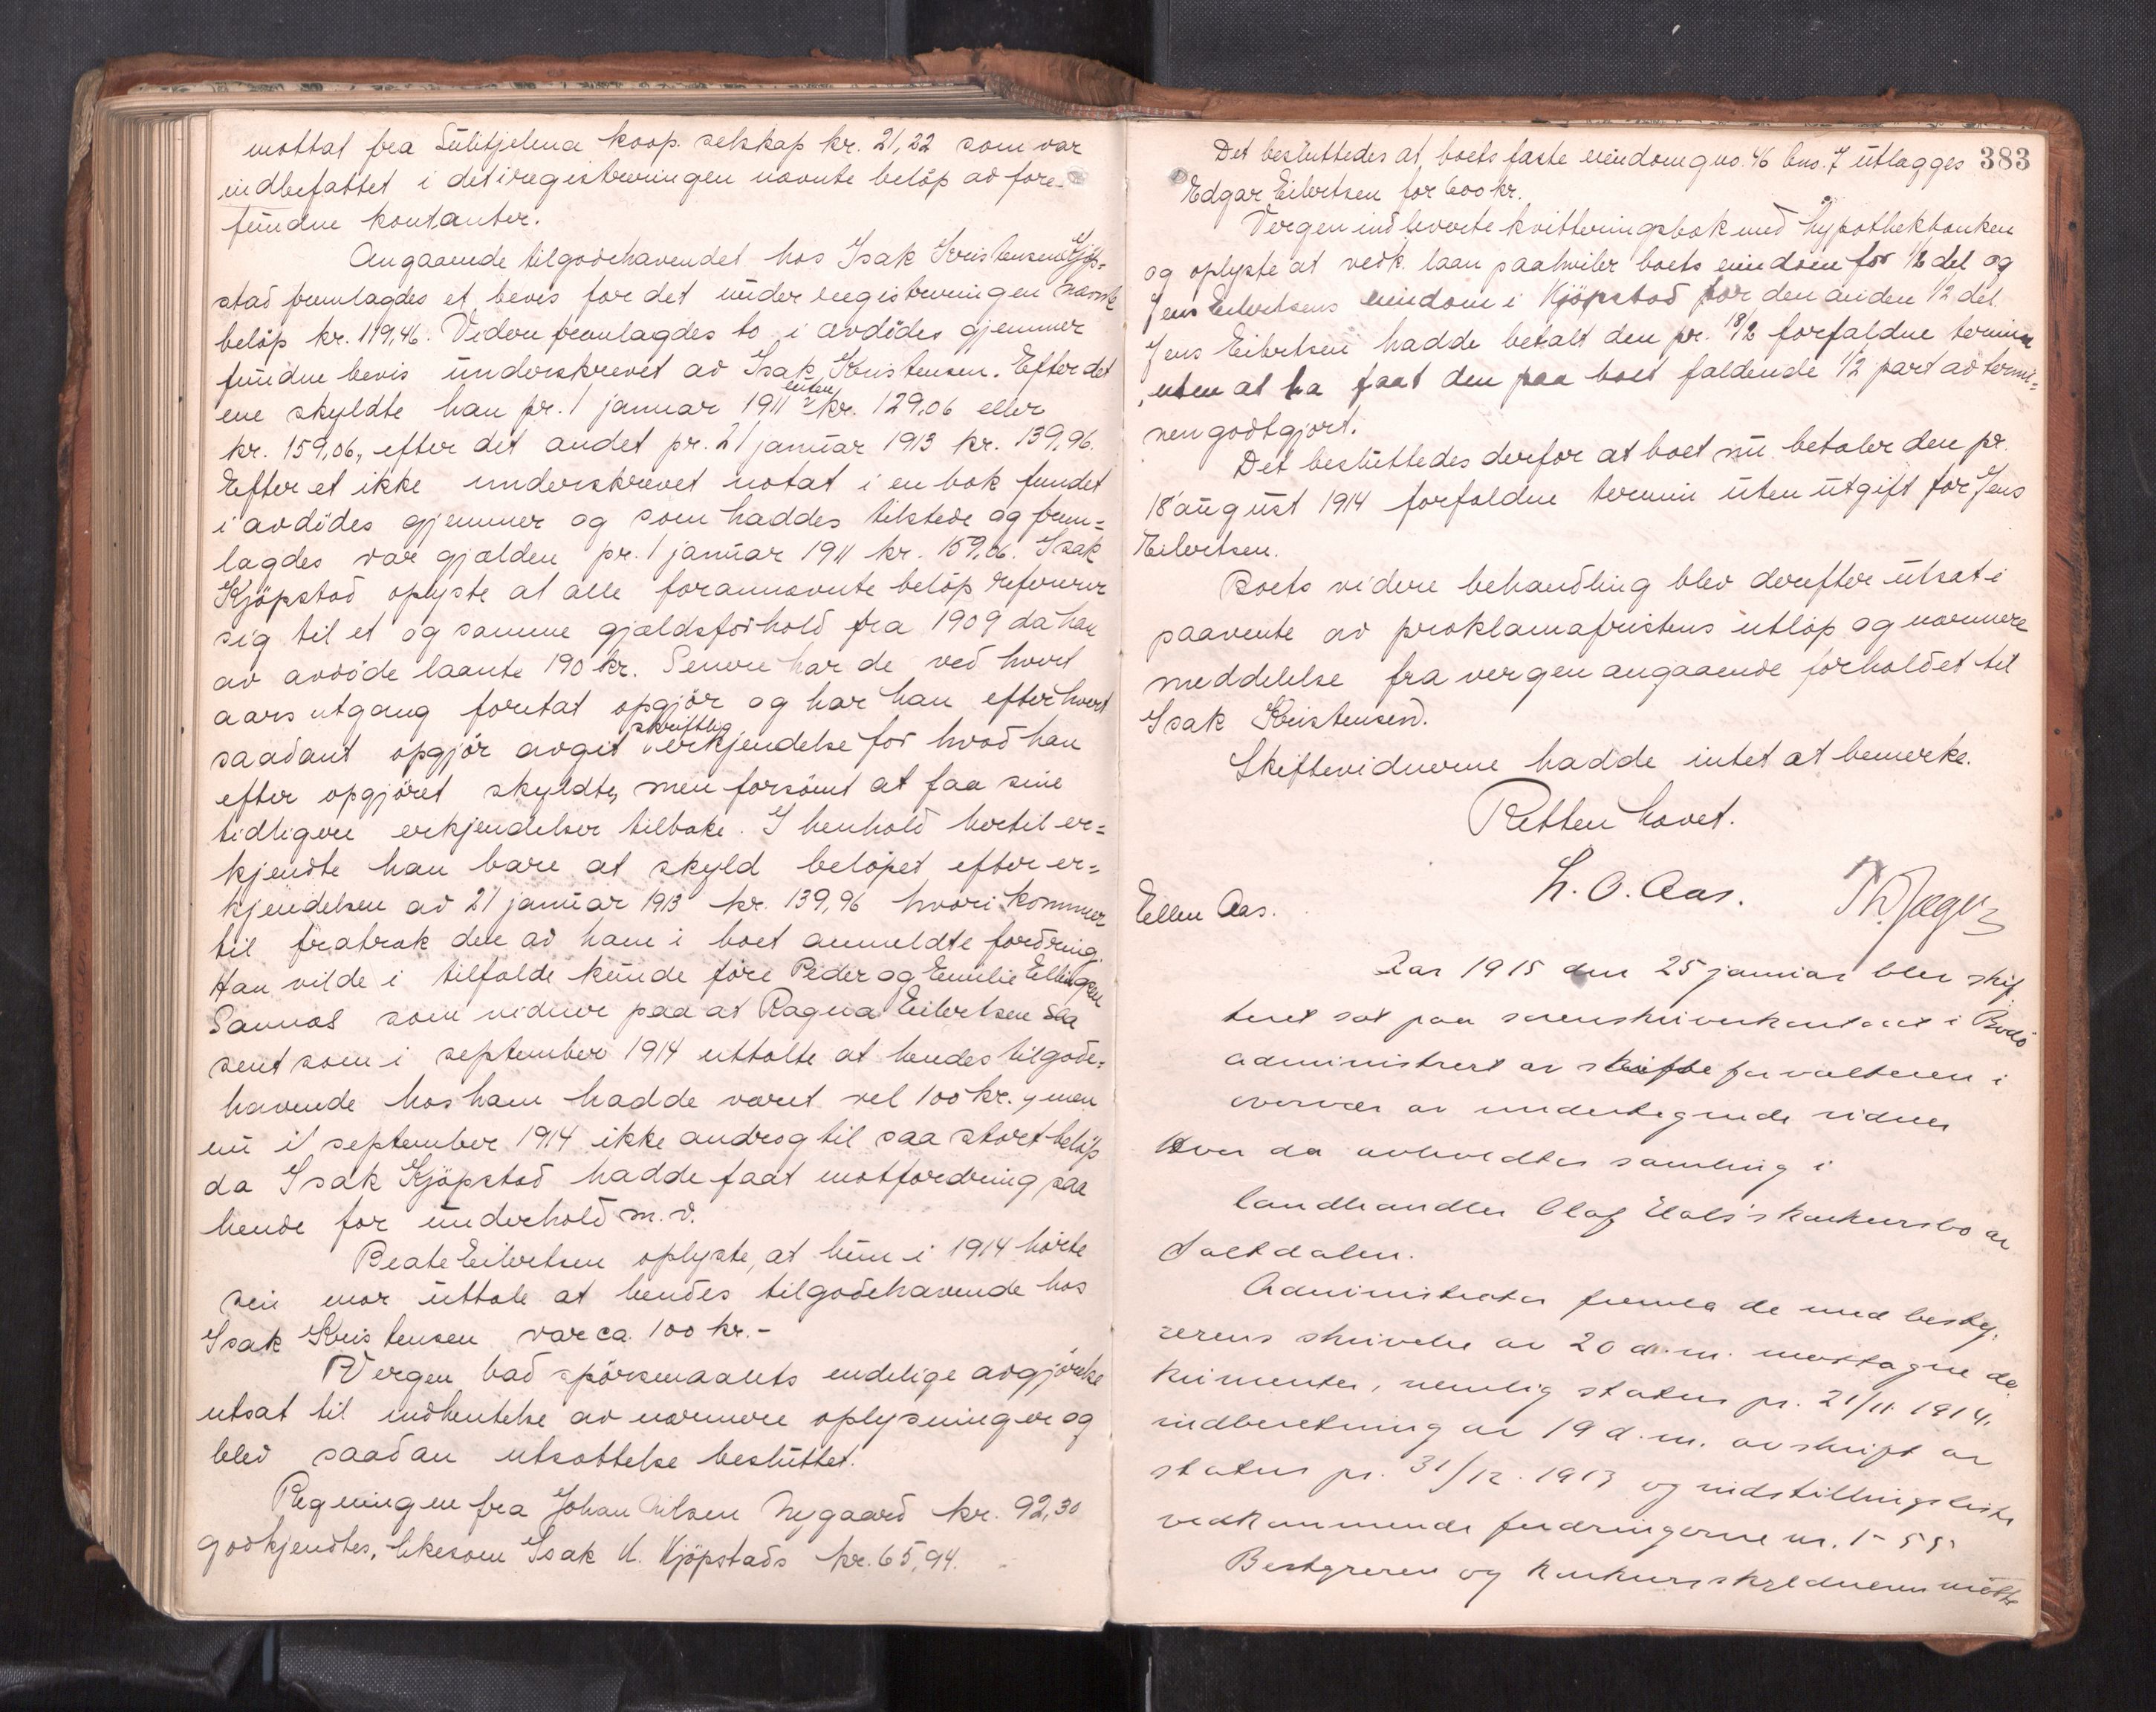 mottat fra Sulitjelma koop. selskap kr. 21,22 som var
indbefattet i det i registreringen nævnte beløp av fore-
fundne kontanter.
Angaaende tilgodehavendet hos Isak Kristensen Kjöp-
stad fremlagdes et bevis for det under registreringen nævnte
belöp kr. 119,46. Videre fremlagdes to i avdödes gjemmer
fundne bevis underskrevet av Isak Kristensen. Efter det
ene skyldte han pr. 1 januar 1911 enten kr. 129,06 eller
kr. 159,06, efter det andet pr. 21 januar 1913 kr. 139,96.
Efter et ikke underskrevet notat i en bok fundet
i avdödes gjemmer og som haddes tilstede og frem=
lagdes var gjælden pr. 1 januar 1911 kr. 159,06. Isak
Kjöpstad oplyste at alle forannævnte belöp refererer
sig til et og samme gjældsforhold fra 1909 da han
av avdöde laante 190 kr. Senere har de ved hvert
aars utgang foretat opgjör og har han efter hvert
saadant opgjör avgit skriftlig erkjendelse for hvad han
efter opgjöret skyldte, men forsömt at faa sine
tidligere erkjendelser tilbake. I henhold hertil er=
kjendte han bare at skyld belöpet efter er=
kjendelsen av 21 januar 1913 kr. 139,96 hvori kommer
til fratrak den av ham i boet anmeldte fordring.
Han vilde i tilfælde kunde före Peder og Emilie Ellingsen
Sannes som vidner paa at Ragna Eilertsen saa
sent som i september 1914 uttalte at hendes tilgode=
havende hos ham hadde været vel 100 kr., men
nu i september 1914 ikke androg til saa stort belöp
da Isak Kjöpstad hadde faat motfordring paa
hende for underhold m. v.
Beate Eilertsen oplyste, at hun i 1914 hörte
sin mor uttale at hendes tilgodehavende hos
Isak Kristensen var ca. 100 kr.-
Vergen bad spörsmaalets endelige avgjörelse
utsat til indhentelse av nærmere oplysninger og
blev saadan utsættelse besluttet.
Regningen fra Johan Nilsen Nygaard kr. 92,30
godkjendtes, likesom Isak K. Kjöpstads kr. 65,94.
383
Det besluttedes at boets faste eiendom gno. 46 bno. 7 utlægges
Edgar Eilertsen for 600 kr.
Vergen indleverte kvitteringsbok med Hypothekbanken
og oplyste at vedk. laan paahviler boets eiendom for 1/2 del og
Jens Eilertsens eiendom i Kjöpstad for den anden 1/2 del.
Jens Eilertsen hadde betalt den pr. 18/2 forfaldne termin
uten at ha faat den paa boet faldende 1/2 part av termi=
nen godtgjort.
Det besluttedes derfor at boet nu betaler den pr.
18 august 1914 forfaldne termin uten utgift for Jens
Eilertsen.
Boets videre behandling blev derefter utsat i
paavente av proklamafristens utlöp og nærmere
meddelelse fra vergen angaaende forholdet til
Isak Kristensen.
Skiftevidnerne hadde intet at bemerke.
Retten hævet.
L. O. Aas. Th. Jæger
Ellen Aas.
Aar 1915 den 25 januar blev skif
teret sat paa sorenskriverkontoret i Bodö
administrert av skifteforvalteren i
overvær av undertegnede vidner
Hver da avholdtes samling i
landhandler Olaf Hals's konkursbo av
Saltdalen.
Administrator fremla de med besty.
rerens skrivelse av 20 d.m. mottagne do
kumenter, nemlig status pr. 21/11 1914.
indberetning av 19 d.m. avskrift av
status pr. 31/12. 1913 og indstillingsliste
vedkommende fordringerne nr. 1-55
Bestyreren og konkursskyldneren mötte